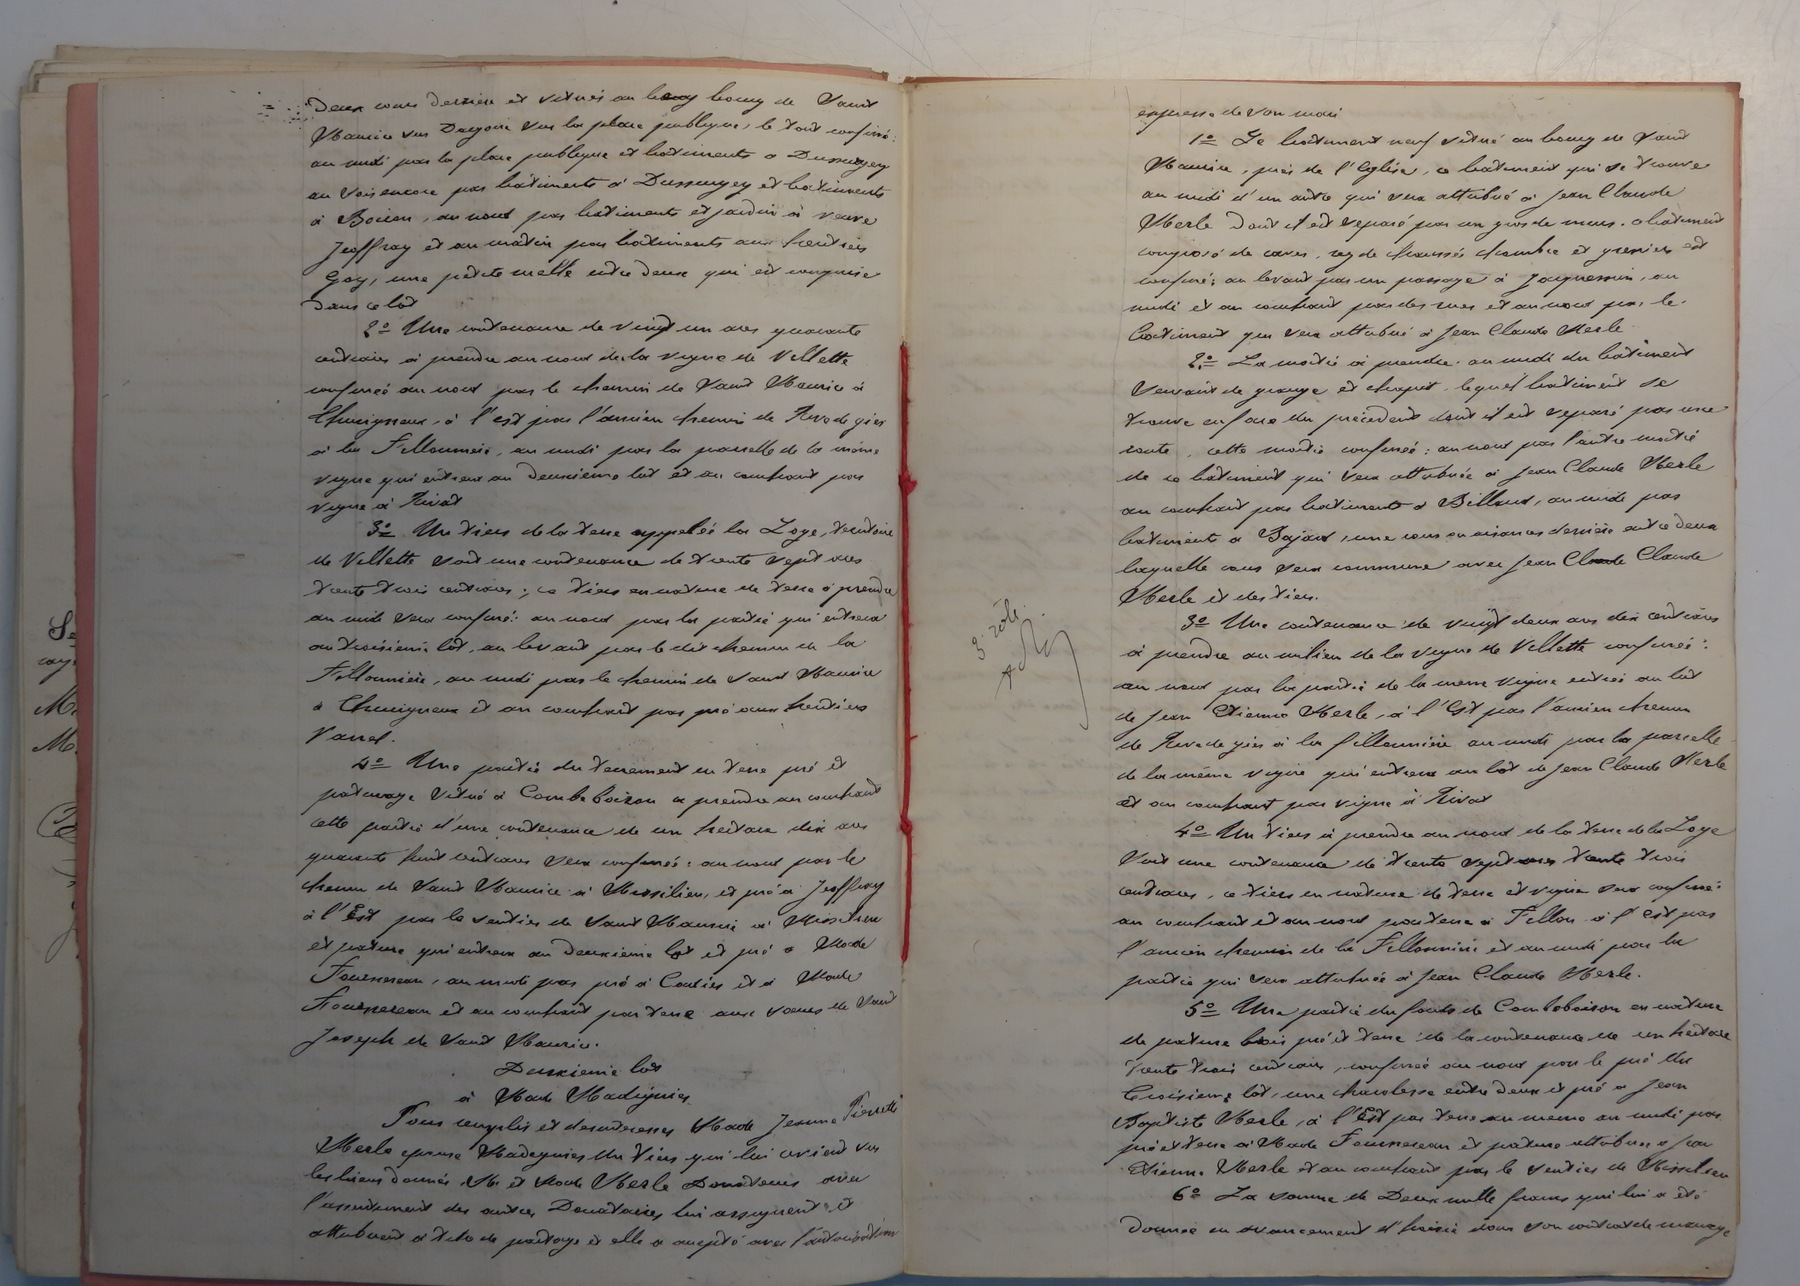 deux cours derrière et situés au bourg de Saint
Maurice sur Dargoire sur la place publique, le tout confiné:
au midi par la place publique et bâtiments à Dussurgey
au soir encore par bâtiments à Dussurgey et bâtiments
à Boiron, au nord par bâtiments et jardin à veuve
Jeoffray et au matin par bâtiments aux héritiers
Goy, une petite entre deux qui est comprise
dans ce lot
2º Une contenance de vingt un ares quarante
centiares à prendre au nord de la vigne de Villette
confinée au nord par le chemin de Saint Maurice à
Chuvigneux, à l'est par l'ancien chemin de Rive de gier
à la Fillonnière, au midi par la parcelle de la même
vigne qui entrera au deuxième lot et au couchant par
vigne à Rivat
3º Un tiers de la terre appelée la Loge, territoire
de Villette soit une contenance de trente sept ares
trente trois centiares; ce tiers en nature de terre à prendre
au midi sera confiné: au nord par la partie qui entrera
au troisième lot, au levant par le dit chemin de la
Fillonnière, au midi par le chemin de Saint Maurice
à Chuvigneux et au couchant par pré aux héritiers
Vanel.
4º Une partie du tenement en terre pré et
pâturage situé à Combeboizon à prendre au couchant
cette partie d'une contenance de un hectare dix ares
quarante huit centiares sera confinée: au nord par le
chemin de Saint Maurice à Missilieu, et pré à Jeoffray
à l'Est par le sentier de Saint Maurice à Missilieu
et pature qui entrera au deuxième lot et pré à Made
Fournereau, au midi par pré à Couties et à Made
Fournereau et au couchant par terre aux soeurs de Saint
Joseph de Saint Maurice.
Deuxième lot
à Made Madignier
Pour remplir et desinteresser Made Jeanne Pierrette
Merle épouse Madignier du tiers qui lui revient sur
les biens donnés, Mr et Made Merle Donateurs avec
l'assentiment des autres Donataires lui assignent et
attribuent à titre de partage et elle a accepté avec l'autorisation
expresse de son mari
1º Le bâtiment neuf situé au bourg de Saint
Maurice, près de l'Eglise, ce bâtiment qui se trouve
au midi d'un autre qui sera attribué à Jean Claude
Merle dont il est séparé par un gros de murs. ce bâtiment
composé de caves, rez de chaussé chambre et greniers est
confiné; au levant par un passage à Jacquemin, au
midi et au couchant par des rues et au nord par le
bâtiment qui sera attribué à Jean Claude Merle
2º La moitié à prendre au midi du bâtiment
servant de grange et chapit, lequel bâtiment se
trouve en face du précédent dont il est séparé par une
route, cette moitié confinée: au nord par l'autre moitié
de ce bâtiment qui sera attribuée à Jean Claude Merle
au couchant par bâtiments à Billaud, au midi par
bâtiments à Bajard, une cour en aisances derrière entre deux
laquelle cour sera commune avec Jean Claude
Merle et des tiers.
3º Une contenance de vingt deux ares dix centiares
à prendre au milieu de la vigne de Villette confinée:
au nord par la partie de la même vigne entrée au lot
de Jean Etienne Merle, à l'Est par l'ancien chemin
de Rive de gier à la fillonnière au midi par la parcelle
de la même vigne qui entrera au lot de Jean Claude Merle
et au couchant par vigne à Rivat
4º Un tiers à prendre au nord de la terre de la Loge
soit une contenance de trente sept ares trente trois
centiares, ce tiers en nature de terre et vigne sera confiné:
au couchant et au nord par terre à Fillon à l'Est par
l'ancien chemin de la Fillonnière et au midi par la
partie qui sera attribuée à Jean Claude Merle.
5º Une partie du fonds de Combeboison en nature
de pature bois pré et terre de la contenance de un hectare
trente trois centiares, confinée au nord par le pré du
troisième lot, une charolesse entre deux et pré à Jean
Baptiste Merle, à l'Est par terre au meme au midi par
pré et terre à Made Fournereau et pature attribuée à Jean
Etienne Merle et au couchant par le sentier de Missilieu
6º La somme de Deux mille francs qui lui a été
donnée en avancement d'hoirie dans son contrat de mariage
3e rôle